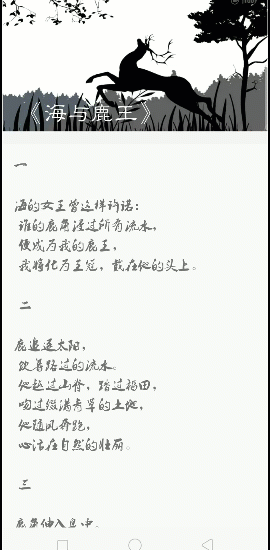 《海与鹿王》
一
海的女王曾这样许诺：
谁的鹿角浸过所有流水，
便成为我的鹿王，
我将化为王冠，戴在他的头上。
二
鹿追逐太阳，
饮着路过的流水。
他越过山脊，踏过稻田，
吻过缀满青草的土地，
他随风奔跑，
心活在自然的壮丽。
三
鹿角伸入
中，